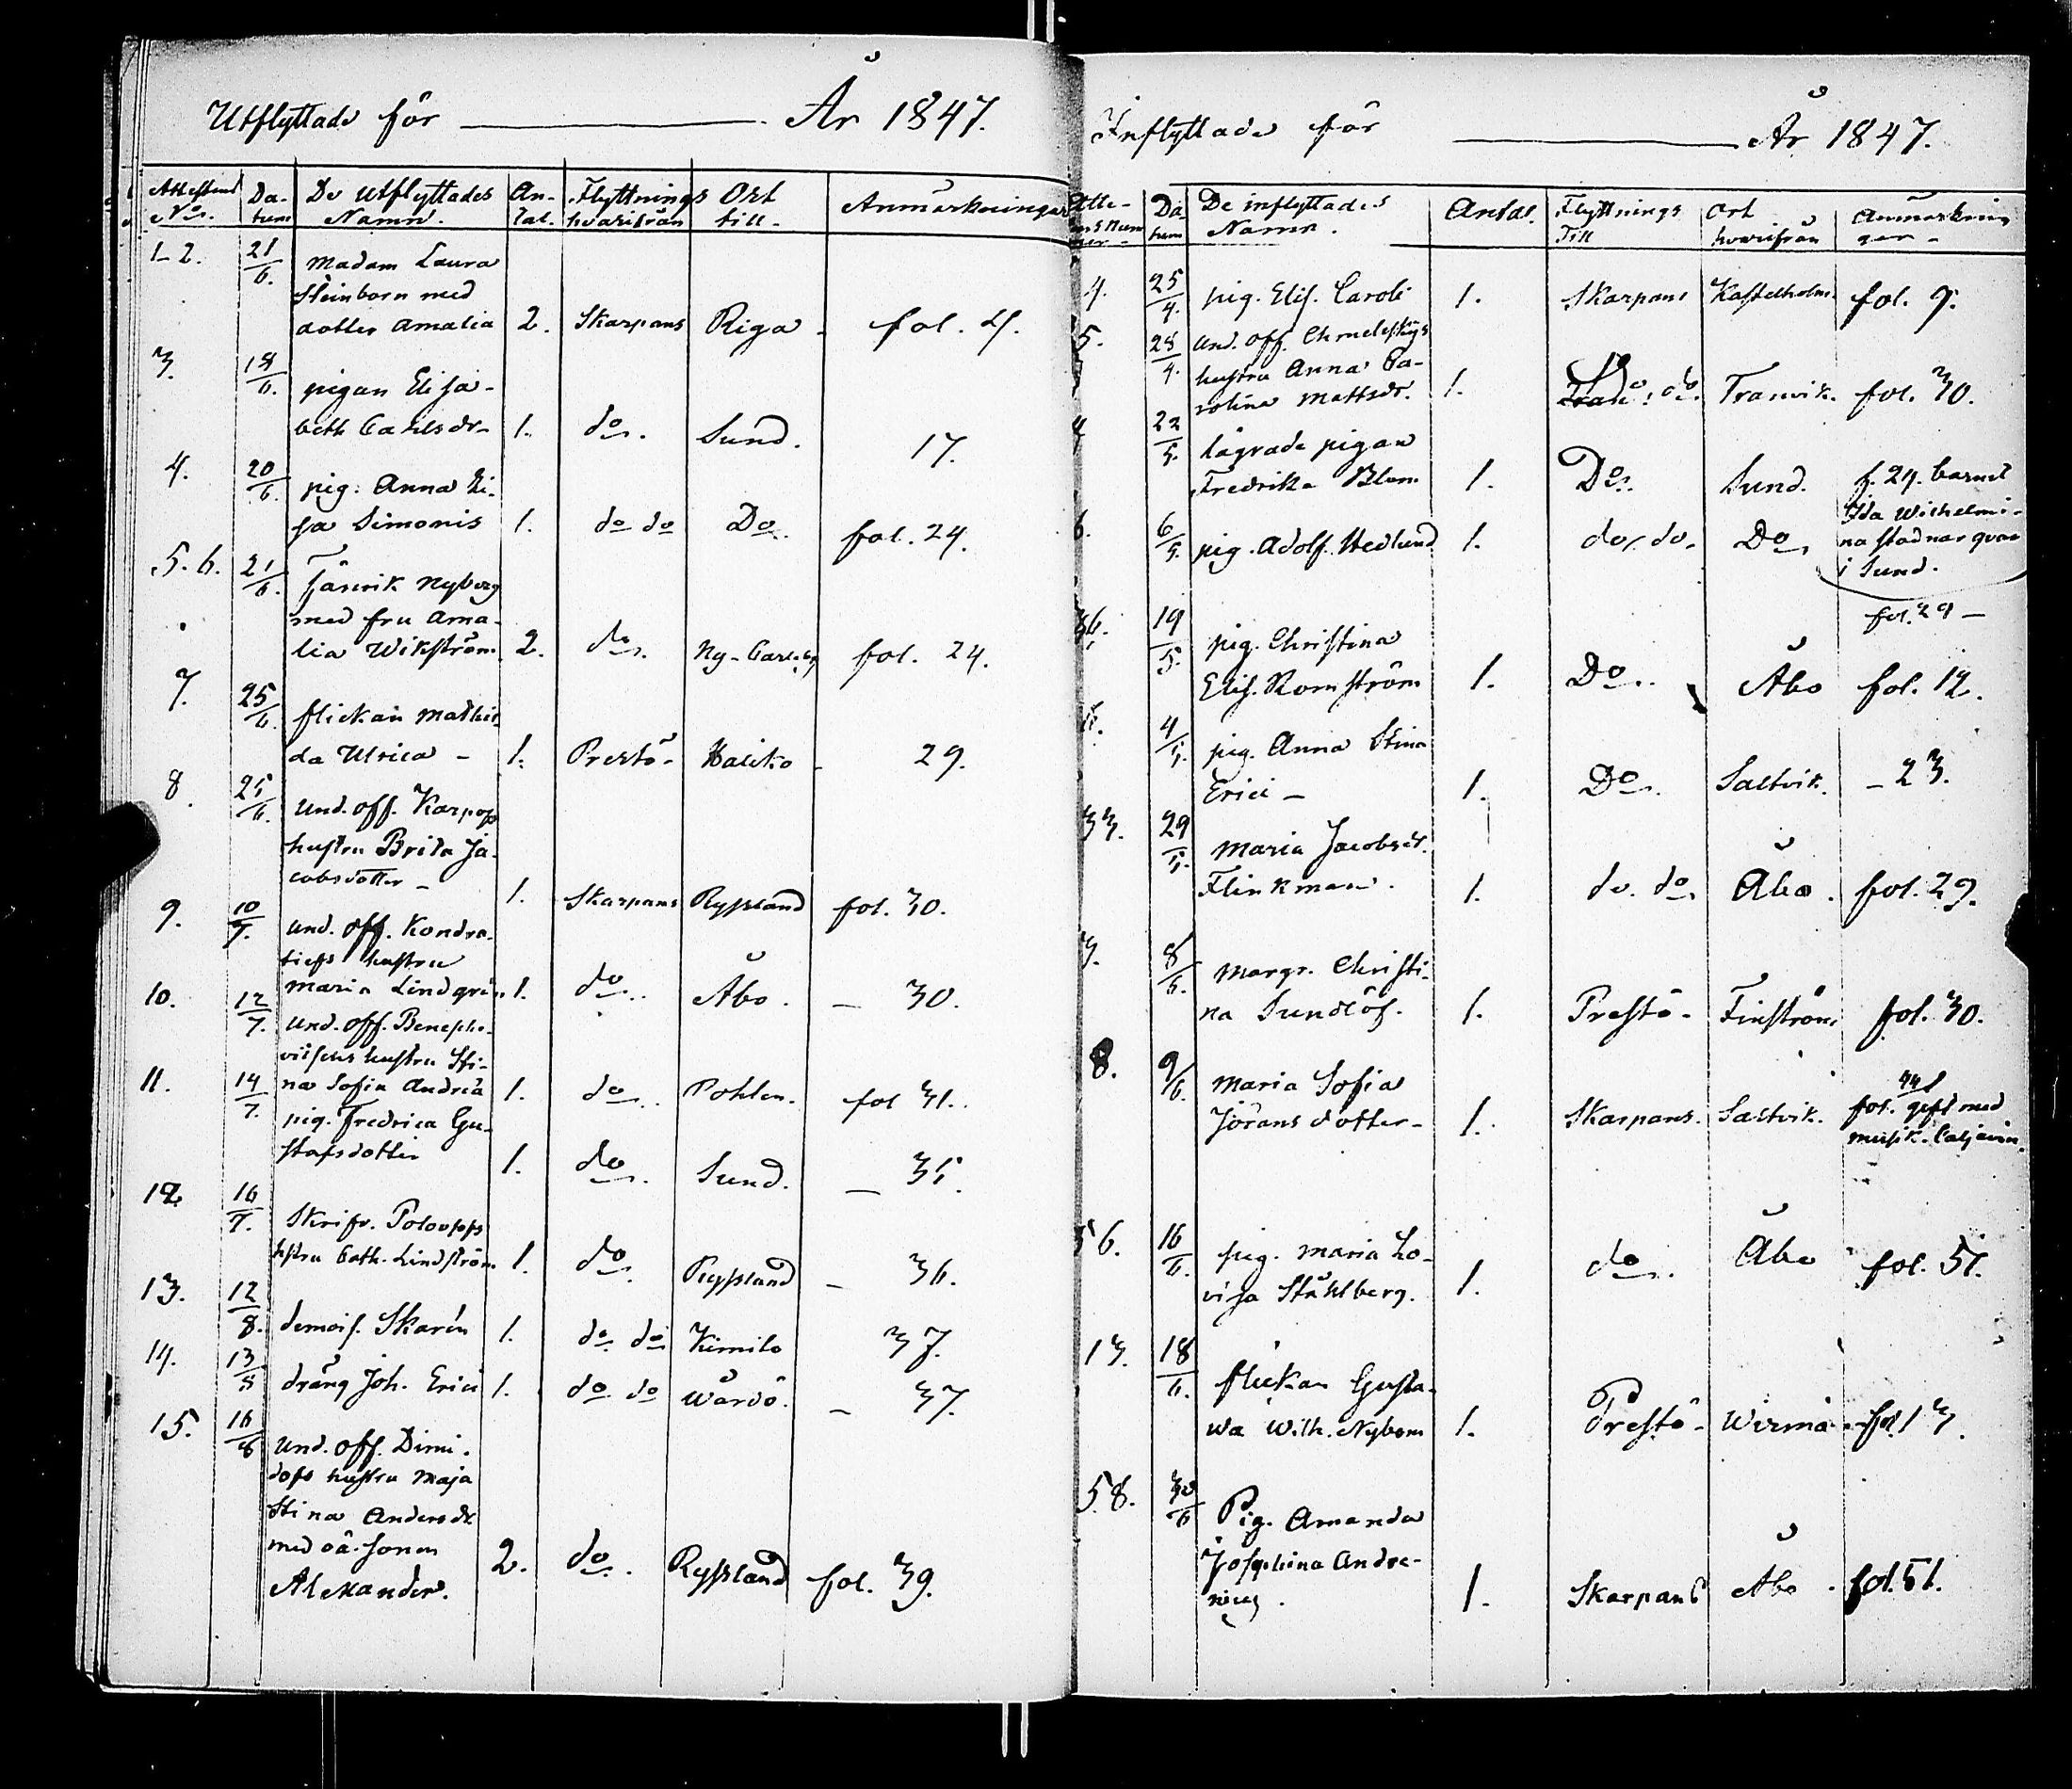 Utflyttade för År 1847.
Attestens No. Da-tum De utflyttades Namn. An-tal. Flyttnings hvarifrån Ort till. Anmärkningar
1-2. 21/6. Madam Laura
Steinborn med
dotter Amalia 2. Skarpans Riga fol.
3. 18/6. pigan Elisa-
beth Carlsdr 1. do. Sund. 17.
4. 20/6. pig. Anna Li-
sa Simonis 1. do do Do. fol. 24.
5.6. 21/6. Fänrik Nyberg
med fru Ama-
lia Wikström 2. do. Ny-Carleby fol. 24.
7. 25/6. flickan Mathil-
da Ulrica - 1. Prestö- Haliko - 29.
8. 25/6. Und. off. Karpoffs
hustru Brita Ja-
cobsdotter - 1. Skarpans Ryssland fol. 30.
9. 10/7. und. off. Kondra-
tieffs hustru
Maria Lindgrén 1. do. Åbo. - 30.
10. 12/7. und. off.
hustru Sti-
na Sofia Andreä 1. do. Pohlen. fol 31.
11. 14/7. pig. Fredrica Gu-
stafsdotter 1. do. Sund. - 35.
12. 16/7. Skrifv.
hstru Cath. Lindström 1. do. Ryssland - 36.
13. 12/8. demois. Skarén 1. do do Kimito 37.
14. 13/8 dräng Joh. Erici 1. do do Wårdö. - 37.
15. 16/8 und. off. Dimi-
dofs hustru Maja
Stina Andersdr
med oä. sonen
Alexander. 2. do. Ryssland fol. 39.
Inflyttade för År 1847.
Da-tum De inflyttades Namn. Antal. Flyttnings Till Ort hvarifrån Anmärkningar -
4. 25/4. pig. Elis. Caroli 1. Skarpans Kastelholm. fol. 9.
5. 28/4. und. off.
hustru Anna Ca-
rolina Mattsdr. 1. do. Tranvik. fol. 30.
22/5. lägrade pigan
Fredrika Blom 1. Do. Sund. f. 29. barnet
Ida Wilhelmi-
na stadnar qvar
i Sund.
6. 6/5. pig. Adolf. Hedlund 1. do. do. Do.
fol. 29 -
36. 19/5. pig. Christina
Elis. Romström 1. Do. Åbo fol. 12.
4/5. pig. Anna Stina
Erici - 1. Do. Saltvik. - 23.
33. 29/5. Maria Jacobsdr.
Flinkman. 1. do. do. Åbo. fol. 29.
7. 8/6. Margr. Christi-
na Sundlöf. 1. Prestö- Finström fol. 30.
8. 9/6. Maria Sofia
Jöransdotter- 1. Skarpans. Saltvik. fol. 44 gift med
musik.
56. 16/6. pig. Maria Lo-
visa Ståhlberg. 1. do. Åbo fol. 51.
13. 18/6. flickan Gusta-
wa Wilh. Nybom 1. Prestö- Wirmå fol 13.
58. 30/6 Pig. Amanda
Josephina Andre-
1. Skarpans Åbo. fol. 51.